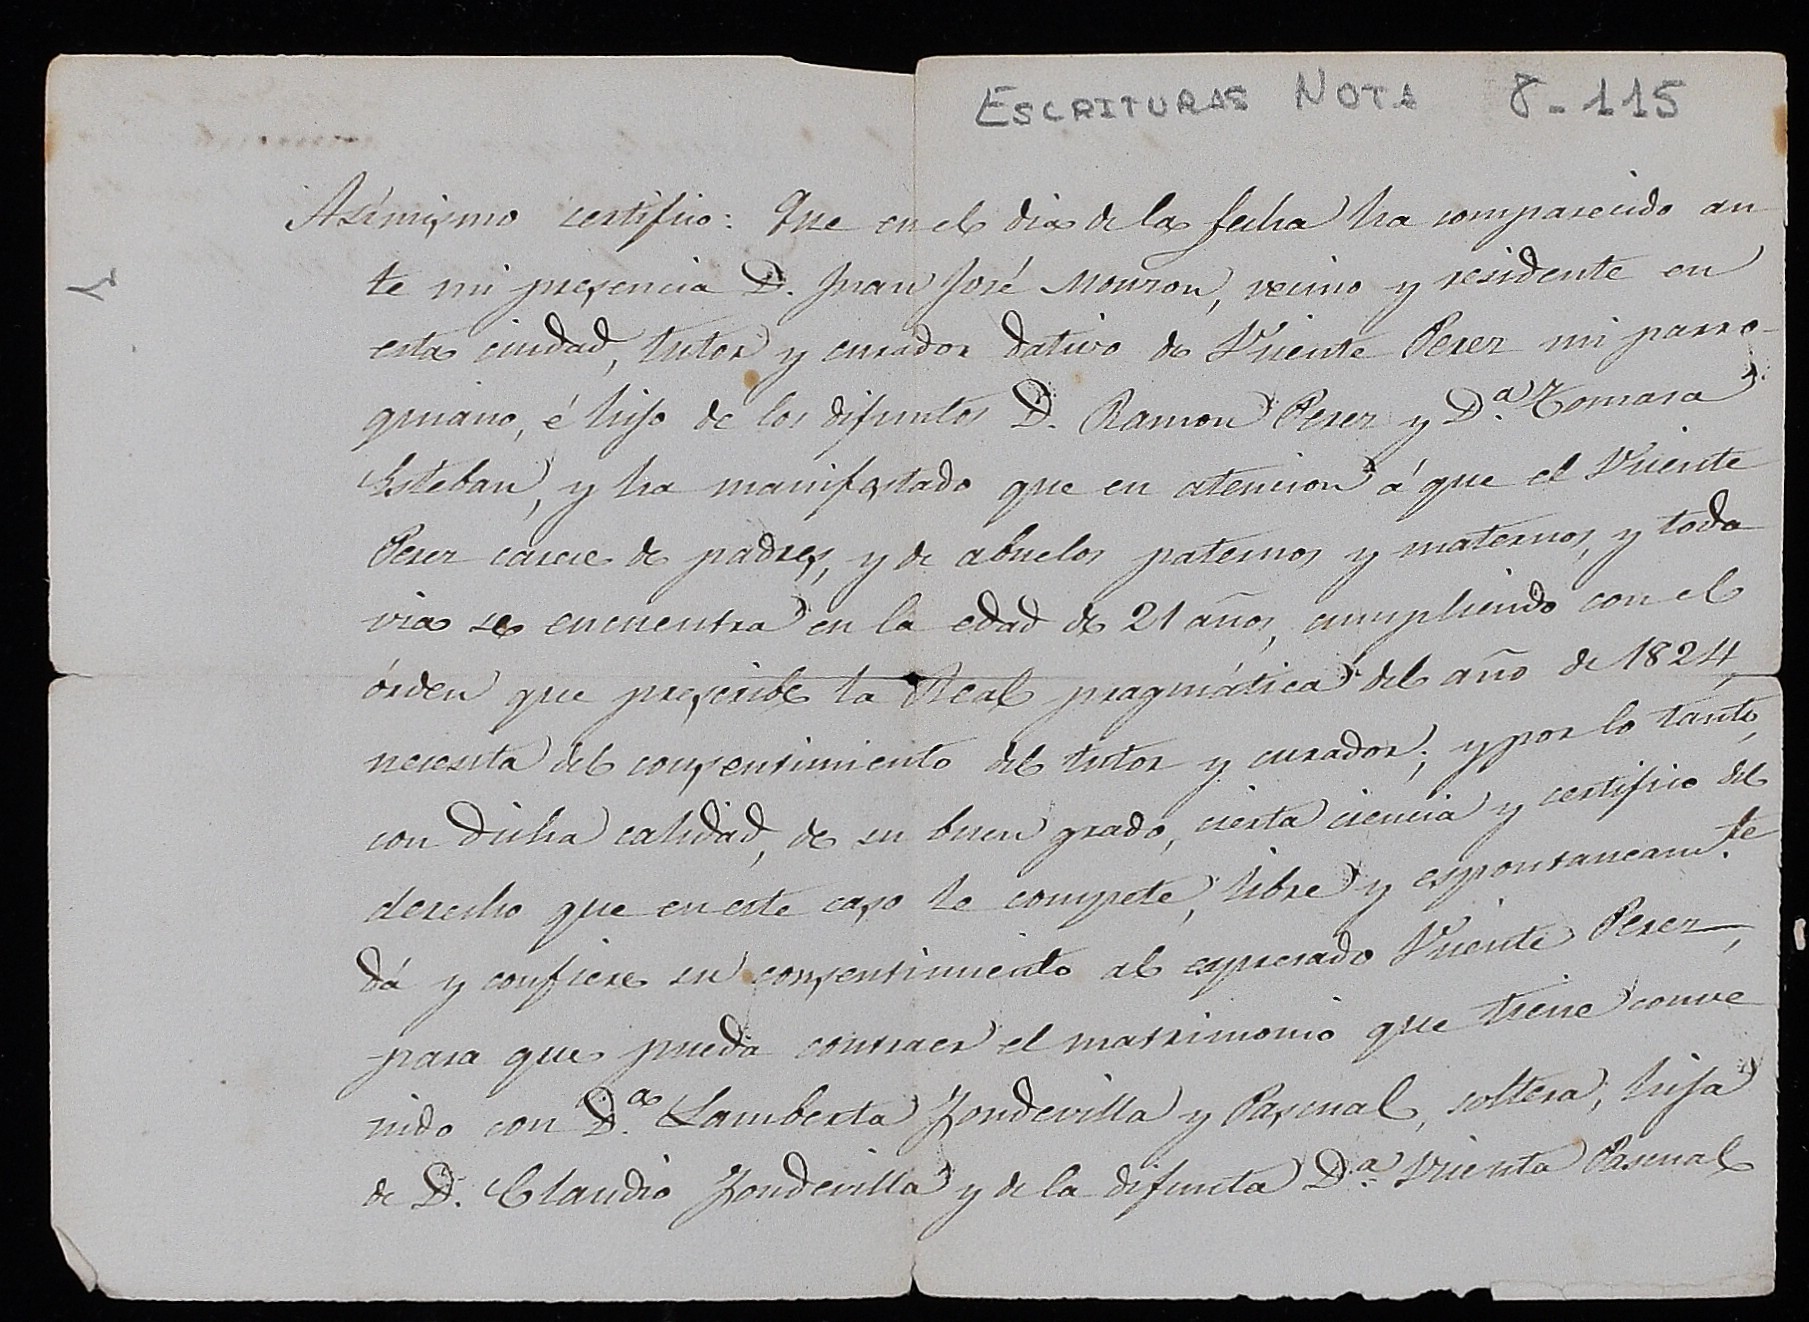 ESCRITURAS NOTA 8-115
Asimismo certifico: Que en el dia de la fecha ha comparecido an
te mi presencia D. Juan José Monzon, vecino y residente en
esta ciudad, tutor y curador dativo de Vicente Perez mi parro-
quiano, é hijo de los difuntos D. Ramon Perez y D.ª Tomasa
Esteban, y ha manifestado que en atencion á que el Vicente
Perez carece de padres, y de abuelos paternos y maternos, y toda
via se encuentra en la edad de 21 años, cumpliendo con el
órden que prescribe la Real pragmática del año de 1824,
necesita del consentimiento del tutor y curador; y por lo tanto,
con dicha calidad, de su buen grado, cierta ciencia y certifico del
derecho que en este caso le compete, libre y espontaneam.te
dá y confiere su consentimiento al espresado Vicente Perez,
para que pueda contraer el matrimonio que tiene conve
nido con D.ª Lamberta Fondevilla y Pascual, soltera, hija
de D. Claudio Fondevilla y de la difunta D.ª Vicenta Pascual